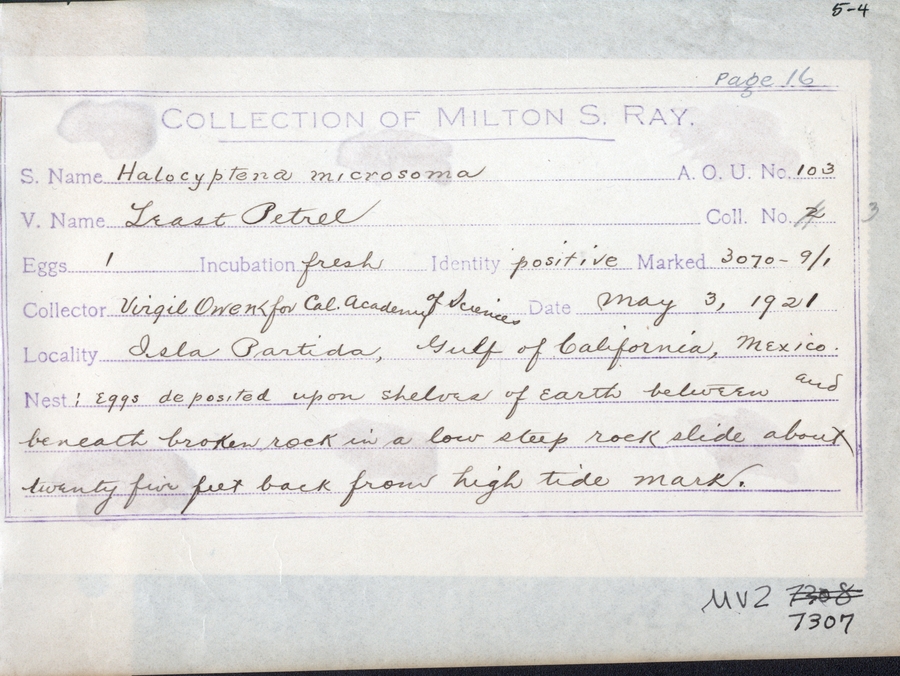 5-4
Page 16
COLLECTION OF MILTON S. RAY.
S. Name Halocyptena microsoma A. O. U. No. 103
V. Name Least Petrel Coll. No. 2 3
Eggs 1 Incubation fresh Identity positive Marked 3070-9/1
Collector Virgil Owen for Cal. Academy of Sciences Date May 3, 1921
Locality Isla Partida, Gulf of California, Mexico.
Nest: Eggs deposited upon shelves of earth between and
beneath broken rock in a low steep rock slide about
twenty five feet back from high tide mark.
MVZ 7308
7307